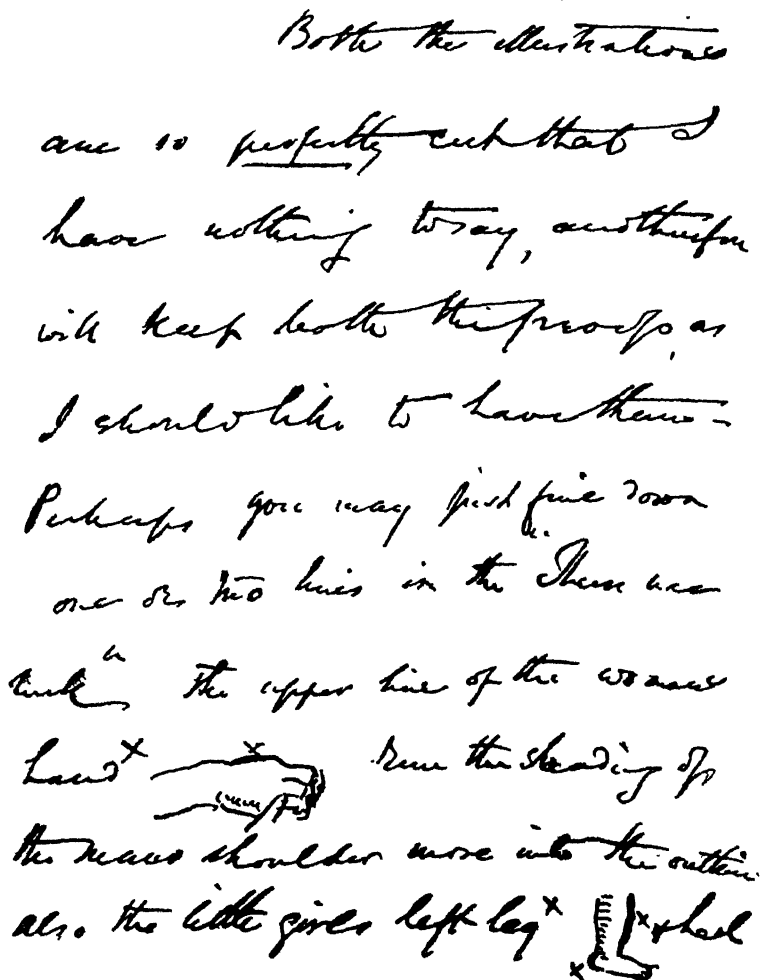 Both the illustrations
are so perfectly cut that I
have nothing to say, and therefore
will keep both the proofs, as
I should like to have them -
Perhaps you may just fine down
one or two lines in the "There was
" The upper line of the womans
hand x x Run the shading of
the mans shoulder more into the outline
also the little girls left leg x x x & heel